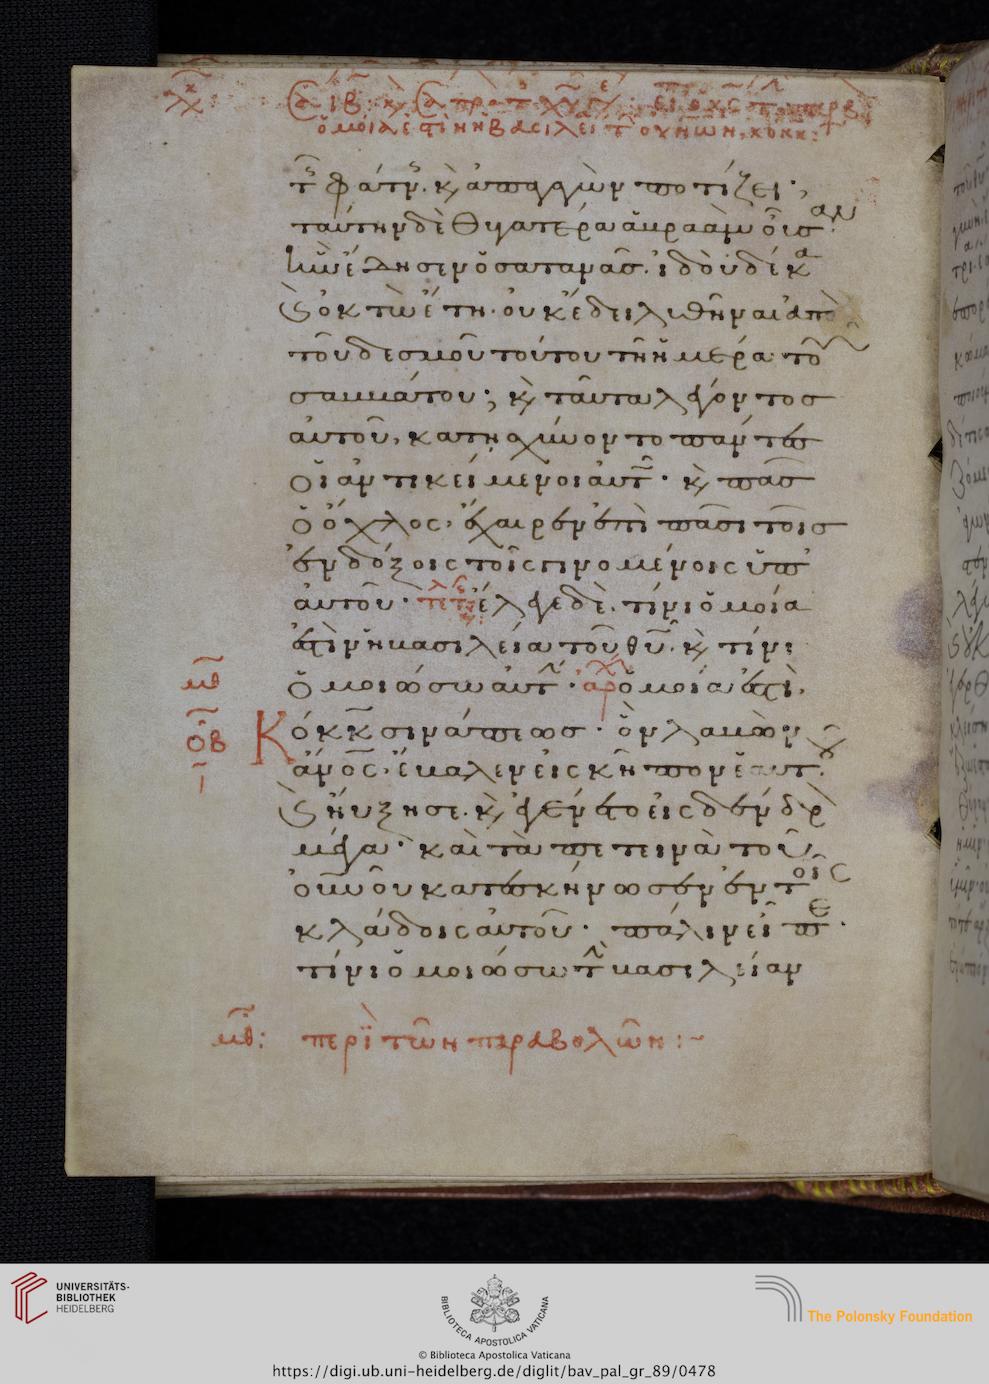 τῆς φάτνης. κ(αὶ) ἀπαγαγὼν ποτίζει·
ταύτην δὲ θυγατέρα ἀβραὰμ οὖσαν·
ἣν ἔδησεν ὁ σατανᾶς. ἰδοὺ δέκα
κ(αὶ) ὀκτὼ ἔτη· οὐκ ἔδει λυθῆναι ἀπὸ
τοῦ δεσμοῦ τούτου τῇ ἡμέρᾳ τοῦ
σαββάτου; κ(αὶ) ταῦτα λέγοντος
αὐτοῦ, κατῃσχύνοντο πάντες
οἱ ἀντικείμενοι αὐτῷ· κ(αὶ) πᾶς
ὁ ὄχλος, ἔχαιρεν ἐπὶ πᾶσι τοῖς
ἐνδόξοις τοῖς γινομένοις ὑπ'
αὐτοῦ· τέ ἔλεγε δὲ. τίνι ὁμοία
ἐστὶν ἡ βασιλεία τοῦ θυ. κ(αὶ) τίνι
ὁμοιώσω αὐτήν· ἀρχ ὁμοία ἐστὶ.
μθ
ροβ
Κόκκῳ σινάπεως· ὃν λαβὼν
ἄνος, ἔβαλεν εἰς κῆπον ἑαυτοῦ
κ(αὶ) ηὔξησε. κ(αὶ) ἐγένετο εἰς δένδρον
μέγα· καὶ τὰ πετεινὰ τοῦ
οὐνοῦ κατεσκήνωσεν ἐν τοῖς
κλάδοις αὐτοῦ· πάλιν εἶπε·
τίνι ὁμοιώσω τὴν βασιλείαν
μθ: περὶ τῶν παραβολῶν:~
UNIVERSITÄTS-
BIBLIOTHEK
HEIDELBERG
BIBLIOTECA APOSTOLICA VATICANA
The Polonsky Foundation
© Biblioteca Apostolica Vaticana
https://digi.ub.uni-heidelberg.de/diglit/bav_pal_gr_89/0478